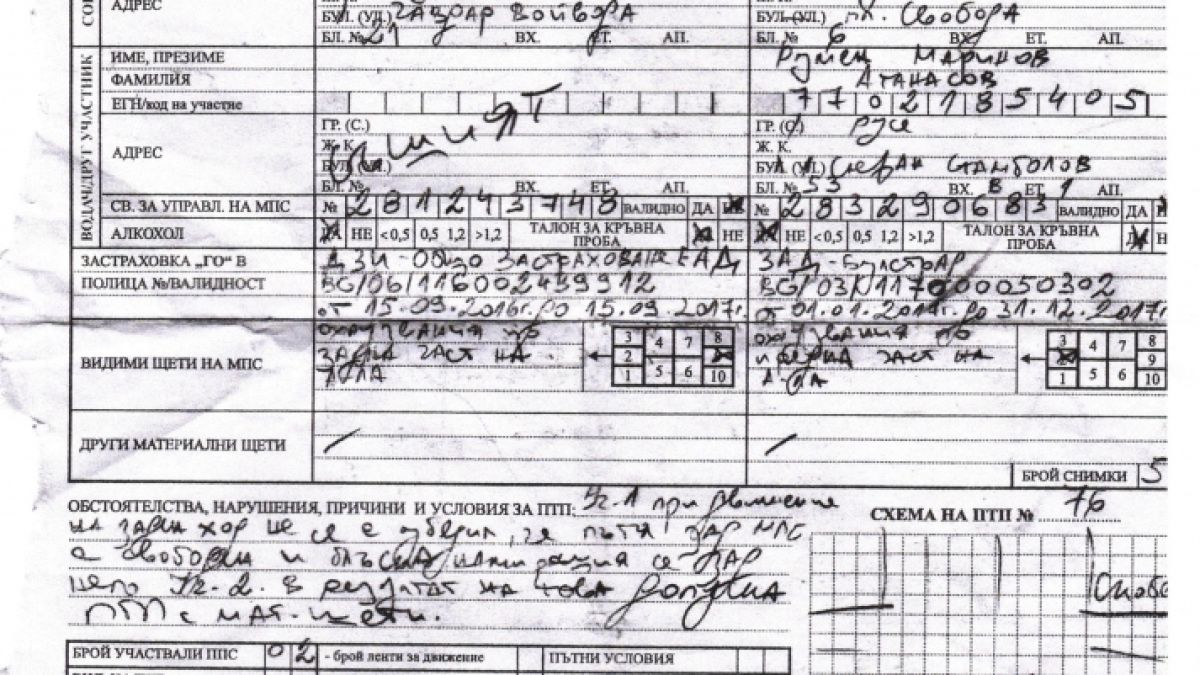 АДРЕС
БУЛ. (УЛ.) Войвода БУЛ. (УЛ.) пл. Свобода
БЛ. № 21 ВХ. ЕТ. АП. БЛ. № 6 ВХ. ЕТ. АП.
ВОДАЧ/ДРУГ УЧАСТНИК
ИМЕ, ПРЕЗИМЕ Румен Маринов
ФАМИЛИЯ Атанасов
ЕГН/код на участие 7702185405
ГР. (С.) ГР. (С.) Русе
АДРЕС Ж. К. Ж. К.
БУЛ. (УЛ.) БУЛ. (УЛ.) Стефан Стамболов
БЛ. № ВХ. ЕТ. АП. БЛ. № 33 ВХ. В ЕТ. 1 АП.
СВ. ЗА УПРАВЛ. НА МПС № 281243748 ВАЛИДНО ДА НЕ № 283290683 ВАЛИДНО ДА
АЛКОХОЛ ДА НЕ <0,5 0,5 1,2 >1,2 ТАЛОН ЗА КРЪВНА ПРОБА ДА НЕ ДА НЕ <0,5 0,5 1,2 >1,2 ТАЛОН ЗА КРЪВНА ПРОБА ДА
ЗАСТРАХОВКА „ГО“ В ДЗИ - Общо Застраховане ЕАД ЗАД - Булстрад
ПОЛИЦА №/ВАЛИДНОСТ BG/06/116002499912 BG/03/117000050302
от 15.09.2016г. до 15.09.2017г. от 01.01.2017г. до 31.12.2017г.
ВИДИМИ ЩЕТИ НА МПС охлузвания по охлузвания по
задна част на 3 4 7 8 2 1 5 6 10 предна част на 3 4 7 8 9 1 5 6 10
ДРУГИ МАТЕРИАЛНИ ЩЕТИ
БРОЙ СНИМКИ 5
ОБСТОЯТЕЛСТВА, НАРУШЕНИЯ, ПРИЧИНИ И УСЛОВИЯ ЗА ПТП: Уч. 1 при движение
СХЕМА НА ПТП № 76
на заден ход не се е убедил, че пътя зад МПС
е свободен и блъсна намиращия се зад
него Уч-2. В резултат на това допусна
ПТП с мат. щети.
БРОЙ УЧАСТВАЛИ ППС 02 - брой ленти за движение ПЪТНИ УСЛОВИЯ